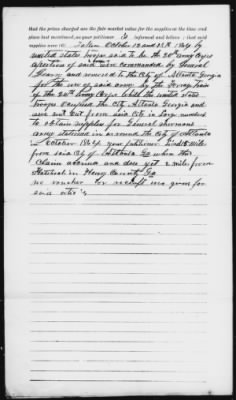 that the prices charged are the fair market value for the supplies at the time and
place last mentioned, as your petitioner is informed and believes; that said
supplies were (6) Taken October 12 and 13th 1864 by
united states troops said to be the 20th Army Corps
a portion of said were commanded by General
Geary and removed to the City of Atlanta Georgia
for the use of said army by the forage train
of the 20th Army Corps whilst the united states
troops occupied the City Atlanta Georgia and
were sent out from said City in large numbers
to obtain supplies for General Shermans
army stationed in around the City of Atlanta
October 1864 your petitioner lived miles
from said City of Atlanta Ga when this
claim accrued and does yet 2 miles from
in Henry County Ga
no voucher or receipt was given for
said